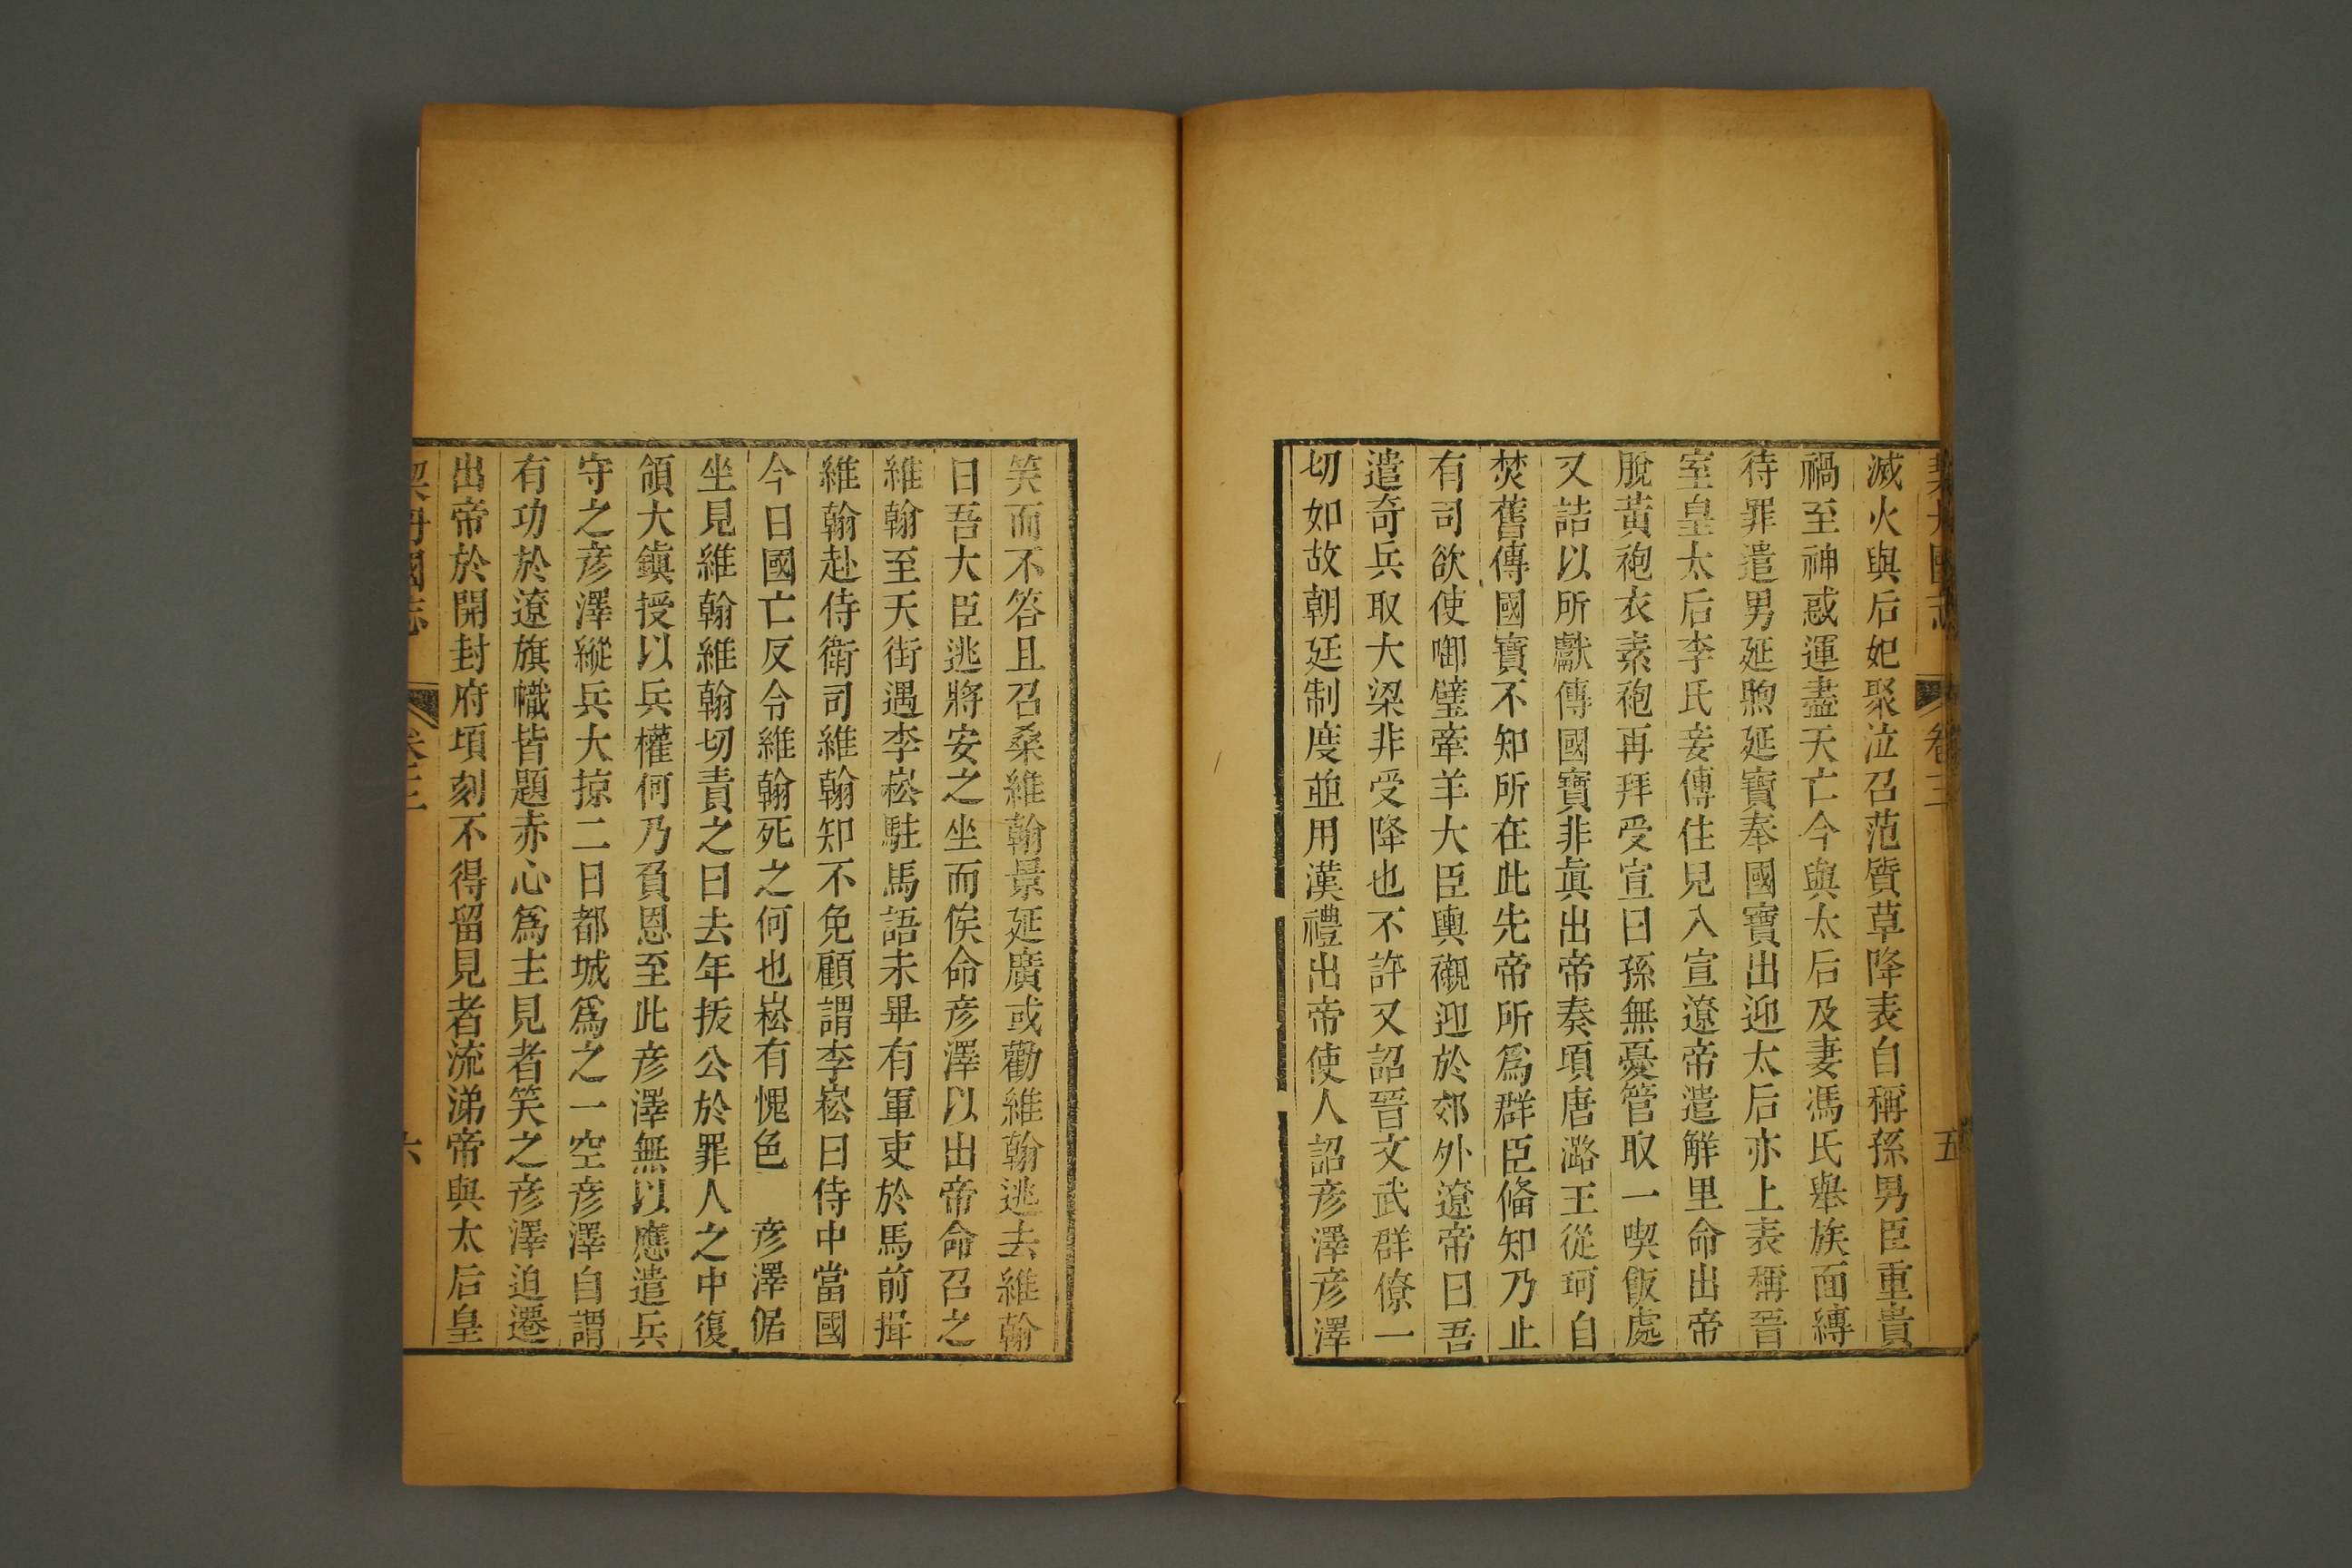 契丹國志 卷三 五
滅火與后妃聚泣召范質草降表自稱孫男臣重貴
禍至神惑運盡天亡今與太后及妻馮氏舉族面縛
待罪遣男延煦延寶奉國寶出迎太后亦上表稱晉
室皇太后李氏妾傳住見入宣遼帝遣解里命出帝
脫黃袍衣素袍再拜受宣曰孫無憂管取一喫飯處
又詰以所獻傳國寶非眞出帝奏項唐潞王從珂自
焚舊傳國寶不知所在此先帝所爲群臣偹知乃止
有司欲使啣璧牽羊大臣輿櫬迎於郊外遼帝曰吾
遣奇兵取大梁非受降也不許又詔晉文武群僚一
切如故朝廷制度並用漢禮出帝使人詔彦澤彦澤
笑而不答且召桑維翰景延廣或勸維翰逃去維翰
曰吾大臣逃將安之坐而俟命彦澤以出帝命召之
維翰至天街遇李崧駐馬語未畢有軍吏於馬前揖
維翰赴侍衛司維翰知不免顧謂李崧曰侍中當國
今日國亡反令維翰死之何也崧有愧色　彦澤倨
坐見維翰維翰切責之曰去年拔公於罪人之中復
領大鎮授以兵權何乃負恩至此彦澤無以應遣兵
守之彦澤縱兵大掠二日都城爲之一空彦澤自謂
有功於遼旗幟皆題赤心爲主見者笑之彦澤迫遷
出帝於開封府項刻不得留見者流涕帝與太后皇
契丹國志 卷三 六